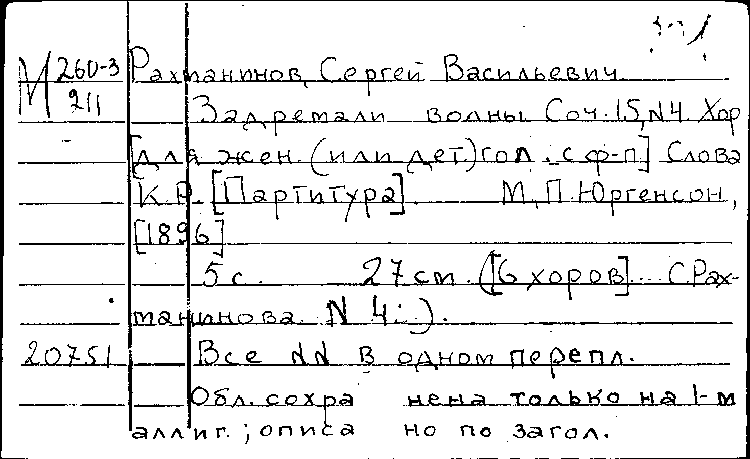 М 260-3 Рахманинов, Сергей Васильевич.
211
Задремали волны. Соч. 15, N4. Хор
[для жен. (или дет.) гол. с ф-п.] Слова
К.Р. [Партитура]. М., П. Юргенсон,
[1896]
5 с. 27 cm. ([6 хоров]... С. Рах-
манинова. N 4:).
20751 Все NN в одном перепл.
Обл. сохранена только на 1-м
аллиг.; описано по загол.